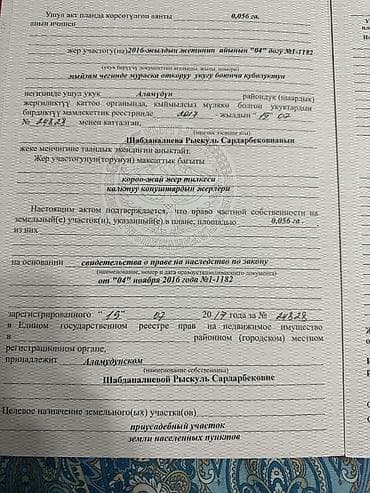 Ушул акт планда көрсөтүлгөн аянты 0,056 га.
анын ичинен
жер участогу(на) 2016-жылдын жетинин айынын "04" догу №1-1182
(укук берүүчү документтин аталышы, жылы, номери)
мыйзам чегинде мураска откоруу укугу боюнча куболуктун
негизинде ушул укук Аламудун райондук (шаардык)
жергиликтүү каттоо органында, кыймылсыз мүлккө болгон укуктардын
бирдиктүү мамлекеттик реестринде 2017 - жылдын " 15 07
№ 24823 менен катталган,
Шабданалиева Рыскуль Сардарбековнанын
жеке менчигине таандык экендигин аныктайт.
Жер участогунун(торунун) максаттык багыты
короо-жай жер тилкеси
калктуу конуштардын жерлери
Настоящим актом подтверждается, что право частной собственности на
земельный(е) участок(и), указанный(е) в плане, площадью 0,056 га -
из них
на основании свидетельства о праве на наследство по закону
(наименование, номер и дата правоустанавливающего документа)
от "04" ноября 2016 года №1-1182
зарегистрированного " 15" 07 2017 года за № 24823
в Едином государственном реестре прав на недвижимое имущество
в районном (городском) местном
регистрационном органе,
принадлежит Аламудунском
(наименование собственника)
Шабданалиевой Рыскуль Сардарбековне
Целевое назначение земельного(ых) участка(ов)
приусадебный участок
земли населенных пунктов